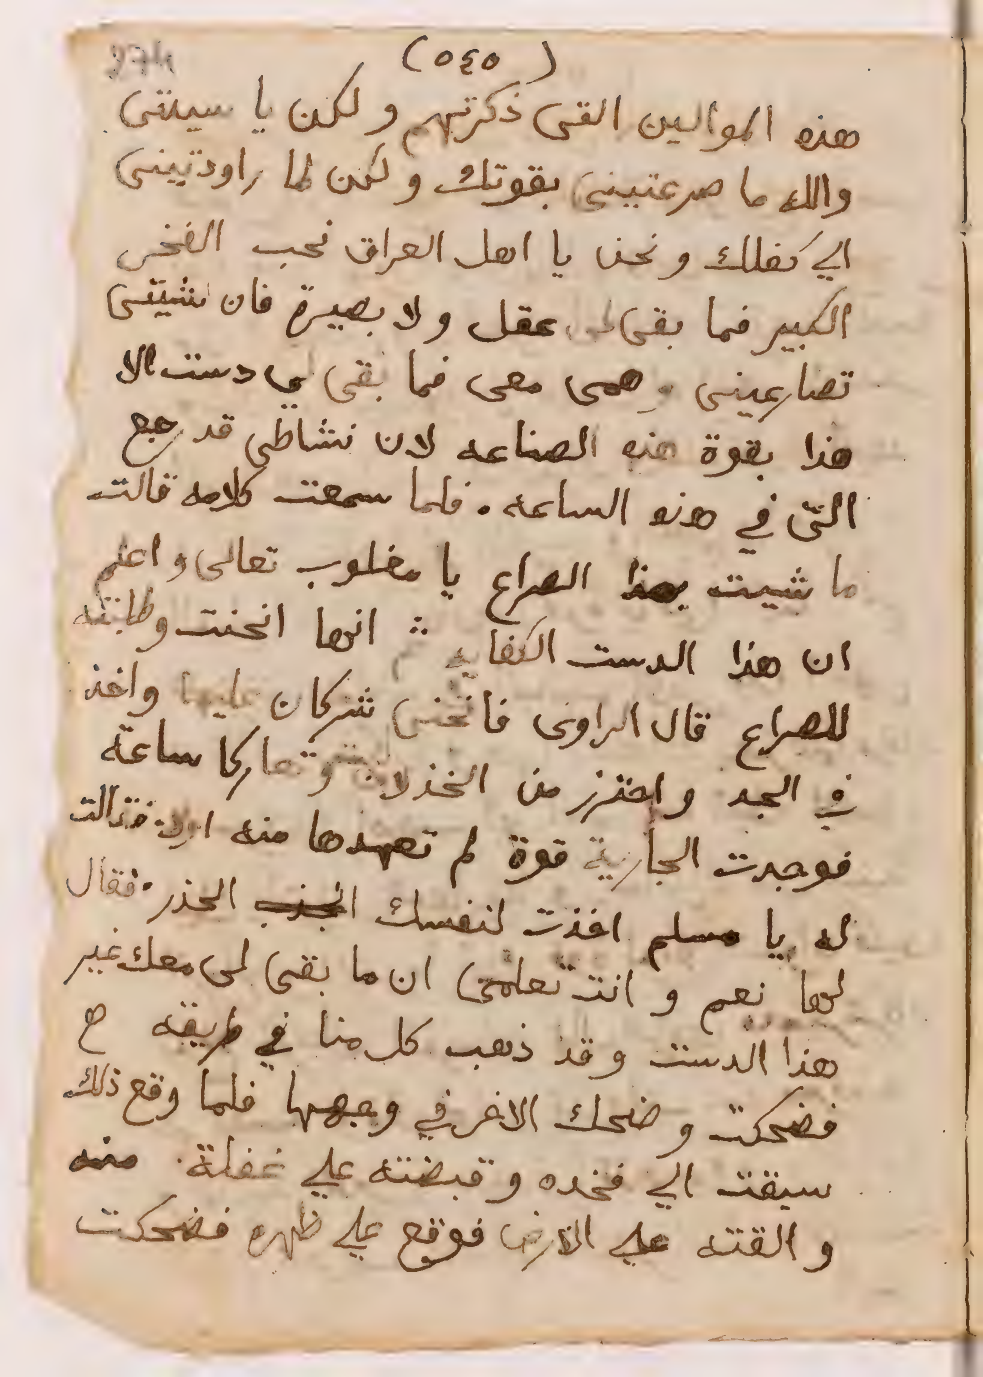 274
(٥٤٥)
هذه الموالين التى ذكرتهم و لكن يا سيتتى
والله ما صرعتينى بقوتك و لكن لما راودتينى
الي كفلك و نحن يا اهل العراق نحب الفخر
الكبير فما بقى لى عقل و لا بصيرة فان شيتى
تصارعينى و همى معى فما بقى لى دست الا
هذا بقوة هذه الصناعه لان نشاطى قد رجع
التى في هذه الساعه . فلما سمعت كلامه قالت
ما شيت بهذا الصراع يا مغلوب تعالى و اعلم
ان هذا الدست الكفايه ثم انها انحنت و طلبته
للصراع قال الراوى فانحنى شركان عليها واخذ
في الجد و احترز من الخذلان و تعاركا ساعة
فوجدت الجارية قوة لم تعهدها منه اولا فقالت
له يا مسلم اخذت لنفسك الحذر . فقال
لها نعم و انت تعلمى ان ما بقى لى معك غير
هذا الدست و قد ذهب كل منا في طريقه
فضحكت و ضحك الاخر في وجهها فلما وقع ذلك
سبقت الي فخده و قبضته علي غفلة . منه
و القته علي الارض فوقع علي ظهره فضحكت